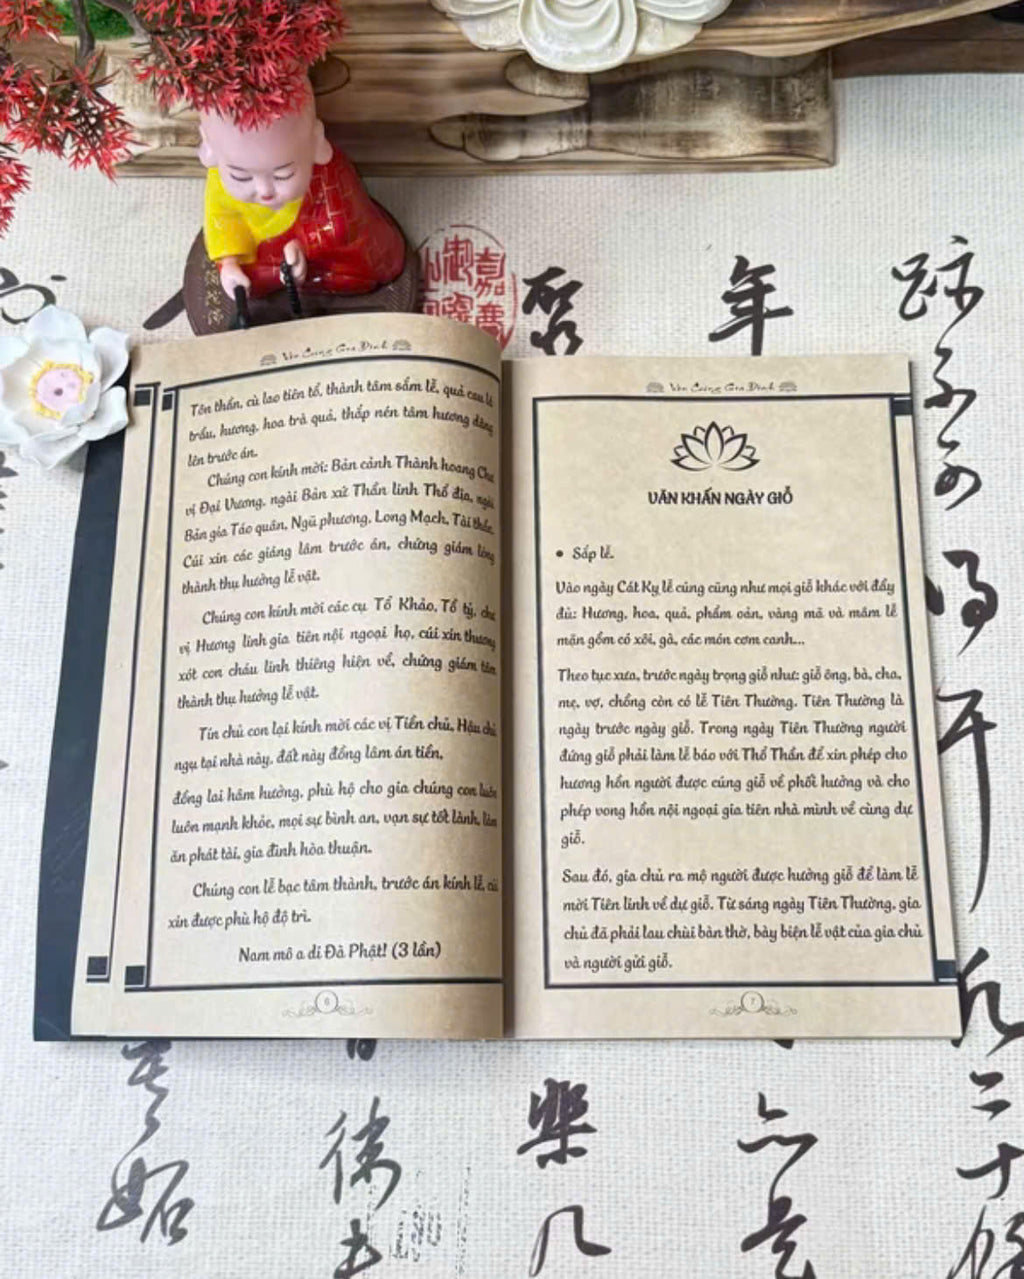 Văn Cúng Gia Đình
Tôn thần, cù lao tiên tổ, thành tâm sắm lễ, quả cau lá
trầu, hương, hoa trà quả, thắp nén tâm hương dâng
lên trước án.
Chúng con kính mời: Bản cảnh Thành hoang Chư
vị Đại Vương, ngài Bản xứ Thần linh Thổ địa, ngài
Bản gia Táo quân, Ngũ phương, Long Mạch, Tài thần.
Cúi xin các giáng lâm trước án, chứng giám lòng
thành thụ hưởng lễ vật.
Chúng con kính mời các cụ Tổ Khảo, Tổ tỷ, chư
vị Hương linh gia tiên nội ngoại họ, cúi xin thương
xót con cháu linh thiêng hiện về, chứng giám tâm
thành thụ hưởng lễ vật.
Tín chủ con lại kính mời các vị Tiền chủ, Hậu chủ
ngụ tại nhà này, đất này đồng lâm án tiền,
đồng lai hâm hưởng, phù hộ cho gia chúng con luôn
luôn mạnh khỏe, mọi sự bình an, vạn sự tốt lành, làm
ăn phát tài, gia đình hòa thuận.
Chúng con lễ bạc tâm thành, trước án kính lễ, cúi
xin được phù hộ độ trì.
Nam mô a di Đà Phật! (3 lần)
6
Văn Cúng Gia Đình
VĂN KHẤN NGÀY GIỖ
● Sắp lễ.
Vào ngày Cát Kỵ lễ cúng cũng như mọi giỗ khác với đầy
đủ: Hương, hoa, quả, phẩm oản, vàng mã và mâm lễ
mặn gồm có xôi, gà, các món cơm canh...
Theo tục xưa, trước ngày trọng giỗ như: giỗ ông, bà, cha,
mẹ, vợ, chồng còn có lễ Tiên Thường. Tiên Thường là
ngày trước ngày giỗ. Trong ngày Tiên Thường người
đứng giỗ phải làm lễ báo với Thổ Thần để xin phép cho
hương hồn người được cúng giỗ về phối hưởng và cho
phép vong hồn nội ngoại gia tiên nhà mình về cùng dự
giỗ.
Sau đó, gia chủ ra mộ người được hưởng giỗ để làm lễ
mời Tiên linh về dự giỗ. Từ sáng ngày Tiên Thường, gia
chủ đã phải lau chùi bàn thờ, bày biện lễ vật của gia chủ
và người gửi giỗ.
7